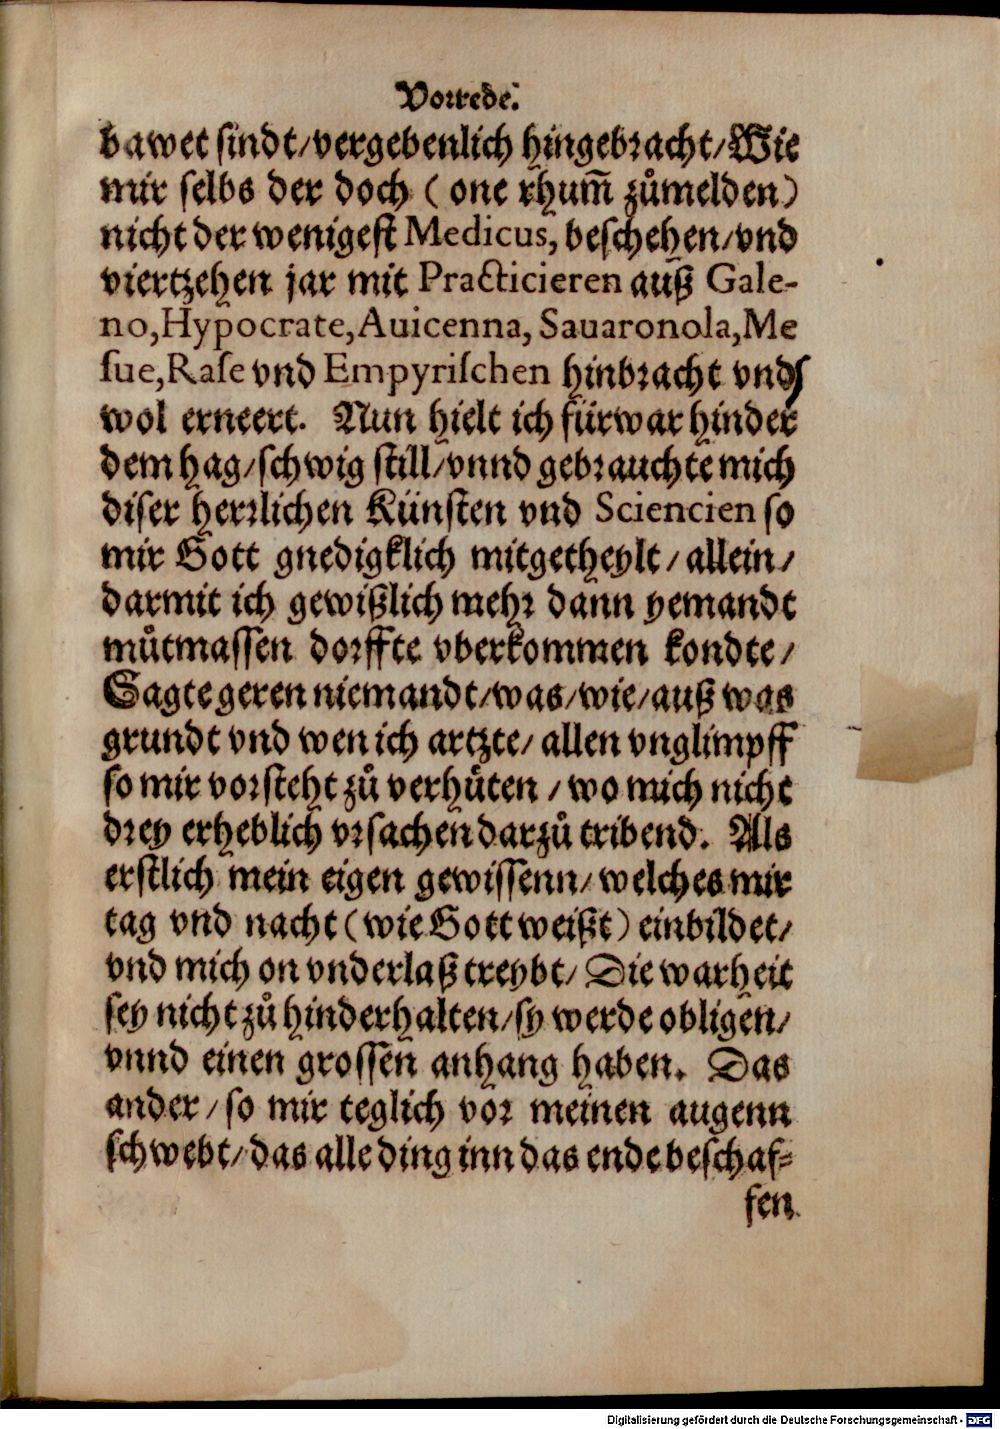 Vorrede.
bawet sindt/vergebenlich hingebracht/Wie
mir selbs der doch (one rhum̃ zůmelden)
nicht der wenigest Medicus, beschehen/vnd
viertzehen jar mit Practicieren auß Gale-
no,Hypocrate,Auicenna, Sauaronola,Me
sue,Rase vnd Empyrischen hinbracht vnds
wol erneert. Nun hielt ich fürwar hinder
dem hag/schwig still/vnnd gebrauchte mich
diser herrlichen Künsten vnd Sciencien so
mir Gott gnedigklich mitgetheylt/allein/
darmit ich gewißlich mehr dann yemandt
můtmassen dorffte vberkommen kondte/
Sagte geren niemandt/was/wie/auß was
grundt vnd wen ich artzte/allen vnglimpff
so mir vorsteht zů verhůten/wo mich nicht
drey erheblich vrsachen darzů tribend. Als
erstlich mein eigen gewissenn/welches mir
tag vnd nacht (wie Gott weißt) einbildet/
vnd mich on vnderlaß treybt/Die warheit
sey nicht zů hinderhalten/sy werde obligen/
vnnd einen grossen anhang haben. Das
ander/so mir teglich vor meinen augenn
schwebt/das alle ding inn das ende beschaf-
fen
Digitalisierung gefördert durch die Deutsche Forschungsgemeinschaft - DFG